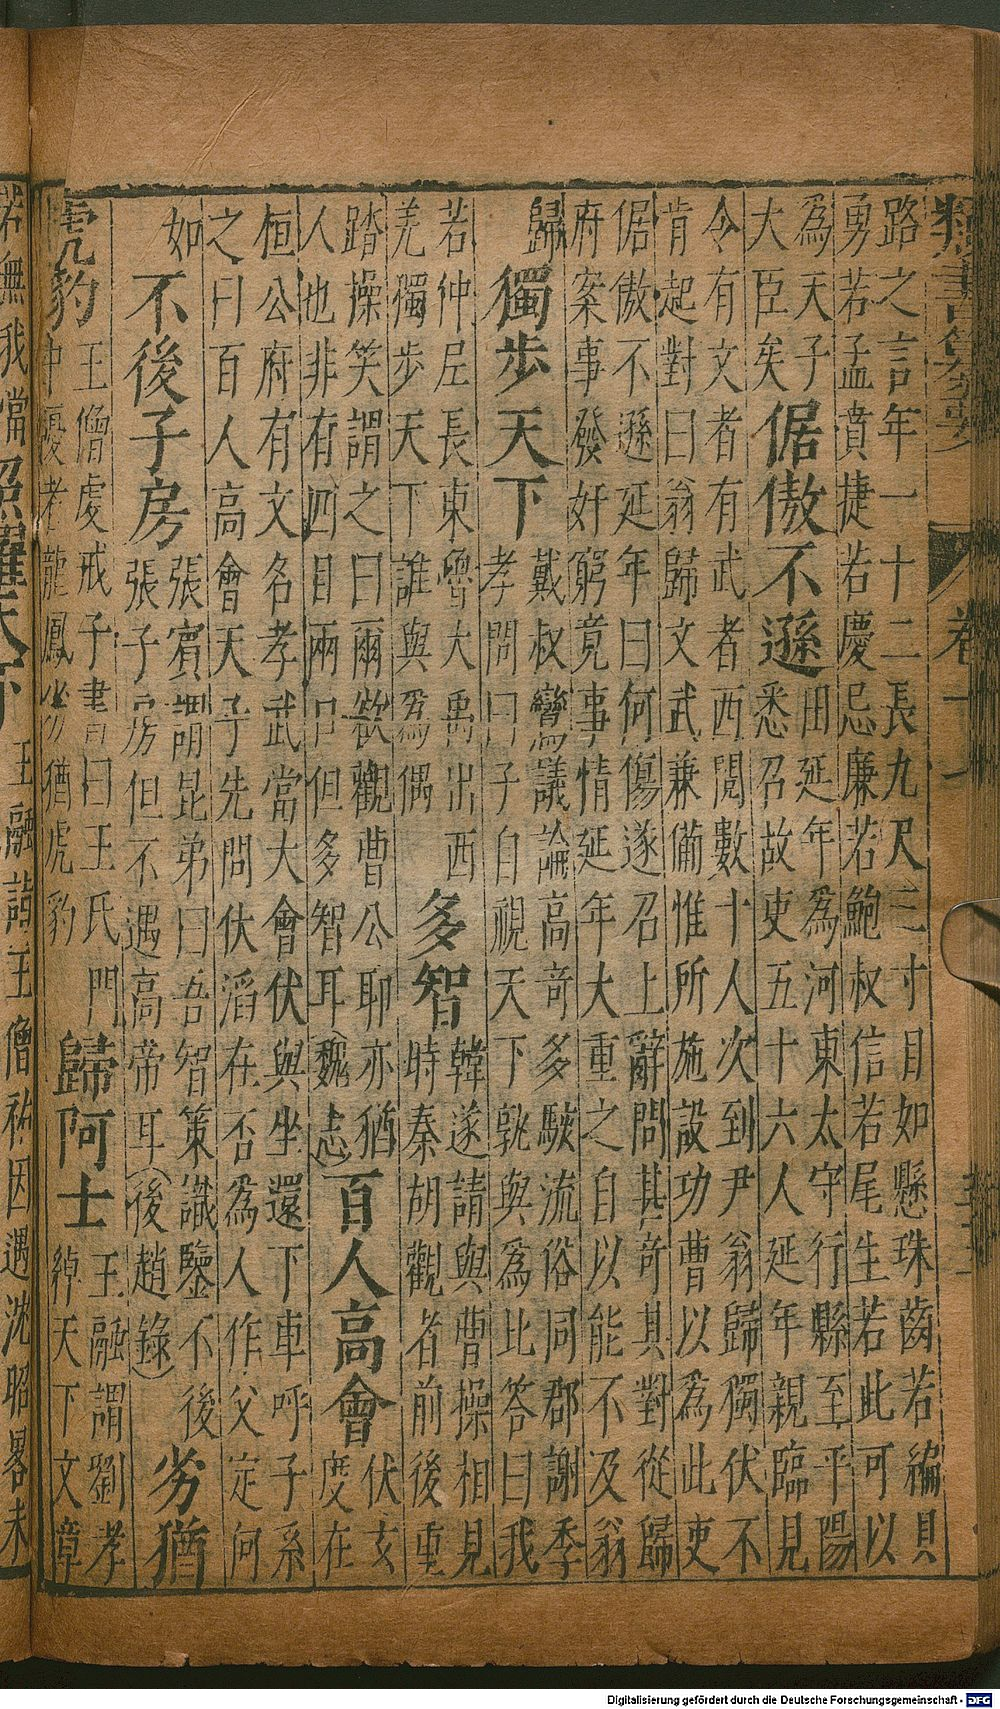 類書纂要 卷十一
路之言年一十二長九尺三寸目如懸珠齒若編貝
勇若孟賁捷若慶忌廉若鮑叔信若尾生若此可以
為天子
大臣矣
倨傲不遜
田延年為河東太守行縣至平陽
悉召故吏五十六人延年親臨見
令有文者有武者西閱數十人次到尹翁歸獨伏不
肯起對曰翁歸文武兼備惟所施設功曹以為此吏
倨傲不遜延年曰何傷遂召上辭問其奇其對從歸
府案事發奸窮竟事情延年大重之自以能不及翁
歸
獨步天下
戴叔鸞議論高奇多駭流俗同郡謝季
孝問曰子自視天下孰與為比答曰我
若仲尼長東魯大禹出西
羌獨步天下誰與為偶
多智
韓遂請與曹操相見
時秦胡觀者前後重
踏操笑謂之曰爾欲觀曹公耶亦猶
人也非有四目兩口但多智耳(魏志)
百人高會
伏玄
度在
桓公府有文名孝武當大會伏與坐還下車呼子系
之曰百人高會天子先問伏滔在否為人作父定何
如
不後子房
張賓謂昆弟曰吾智策識鑒不後
張子房但不遇高帝耳(後趙錄)
劣猶
虎豹
王僧虔戒子書曰王氏門
中優者龍鳳劣猶虎豹
歸阿士
王融謂劉孝
綽天下文章
若無我當
照耀天下
王融詣王僧祐因遇沈昭畧未
Digitalisierung gefördert durch die Deutsche Forschungsgemeinschaft - DFG